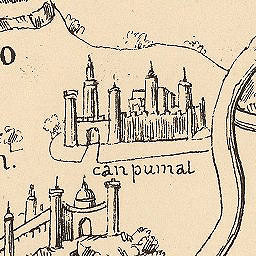 o
n.
canpumal